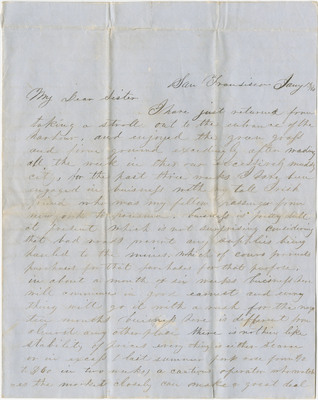 San Francisco Jany
My Dear Sister
I have just returned from
taking a stroll out to the entrance of the
harbor, and enjoyed the green grass
and fine ground exceedingly after wading
all the week in this our
city, in the past three weeks I have been
engaged in business with my tall Irish
friend who was my fellow passenger from
New York to Panama. business is pretty dull
at present which is not surprising considering
that bad roads prevent any supplies being
hauled to the mines. which of course prevents
purchasers for that purpose
in about a month or six weeks business
will commence in good earnest and every
thing will go it with a rush for the
months business here is different from
almost any other place there is nothing like
stability of prices every thing is either
or in excess last summer pork rose from
to $60 in two weeks a cautious operator who
the market closely can make a great deal